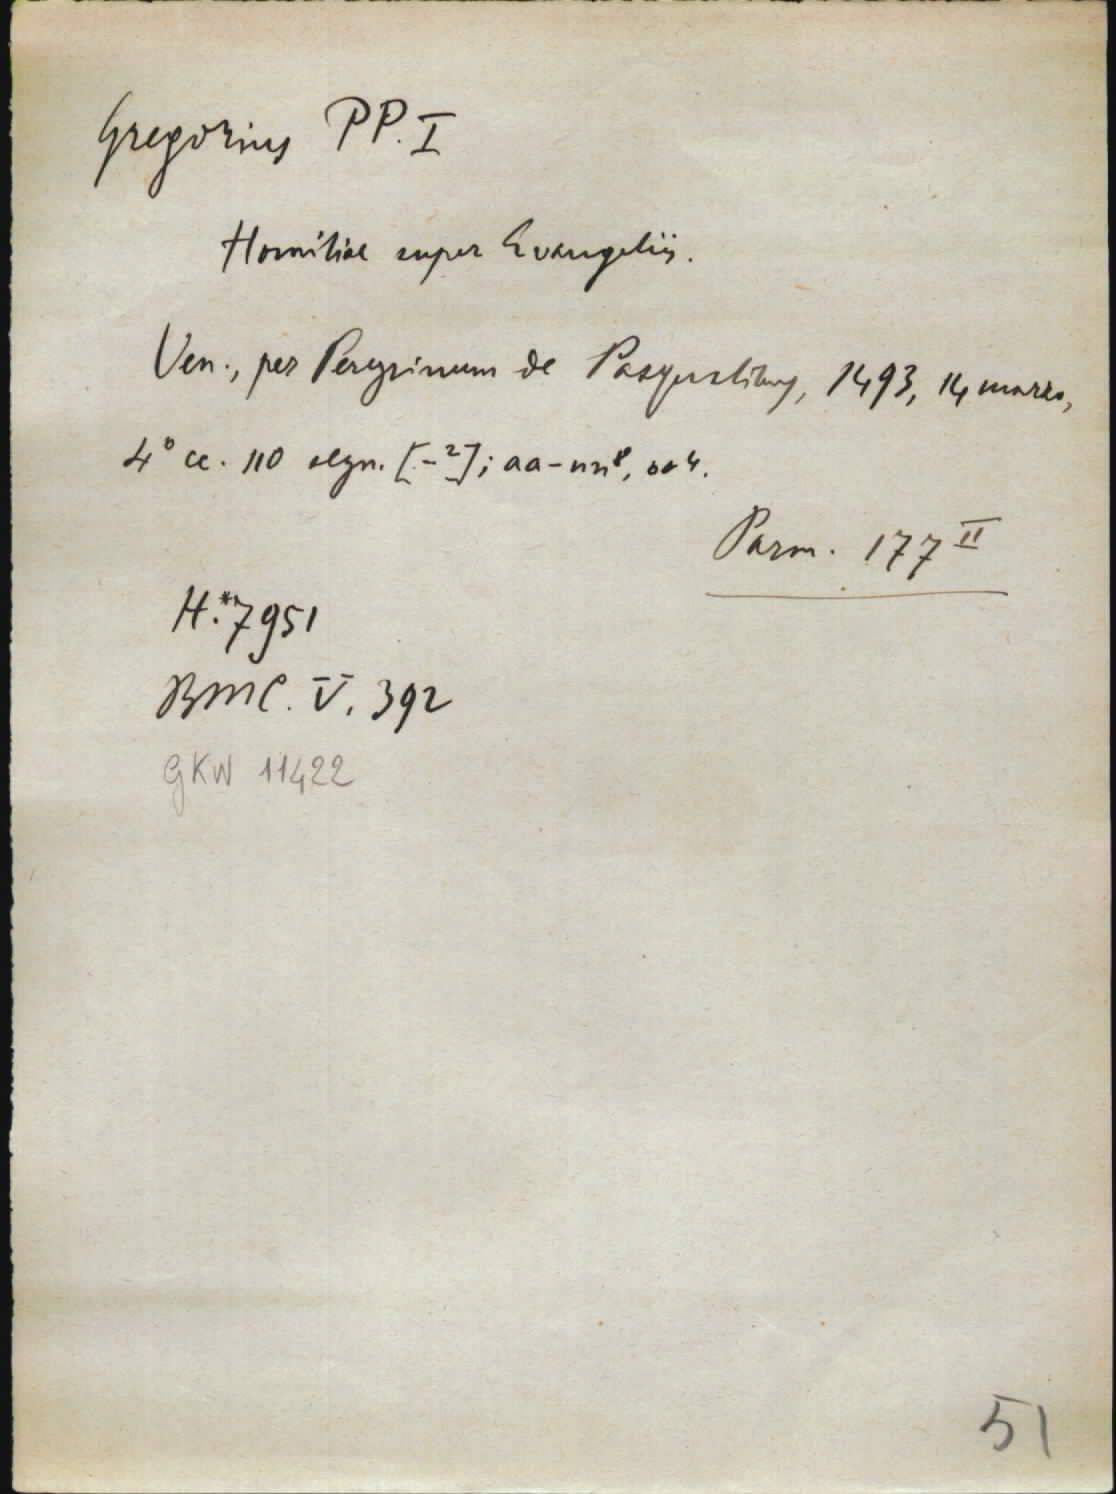 Gregorius PP. I
Homiliae super Evangeliis.
Ven., per Peregrinum de Pasqualibus, 1493, 14 marzo,
4° cc. 110 segn. [-²]; aa-nn⁸, oo⁴.
Parm. 177 II
H.*7951
BMC. V. 392
GKW 11422
51